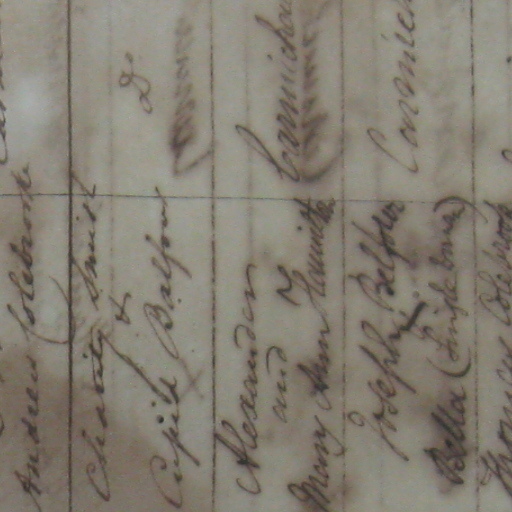 Andrew Colebrooke
Charity Smith
&
Cupid Balfour Do
Alexander
and
Mary Ann Hamilton Carmichael
Joseph Belfour Carmich
&
Bella (Single woman)
Thomas Colebrook